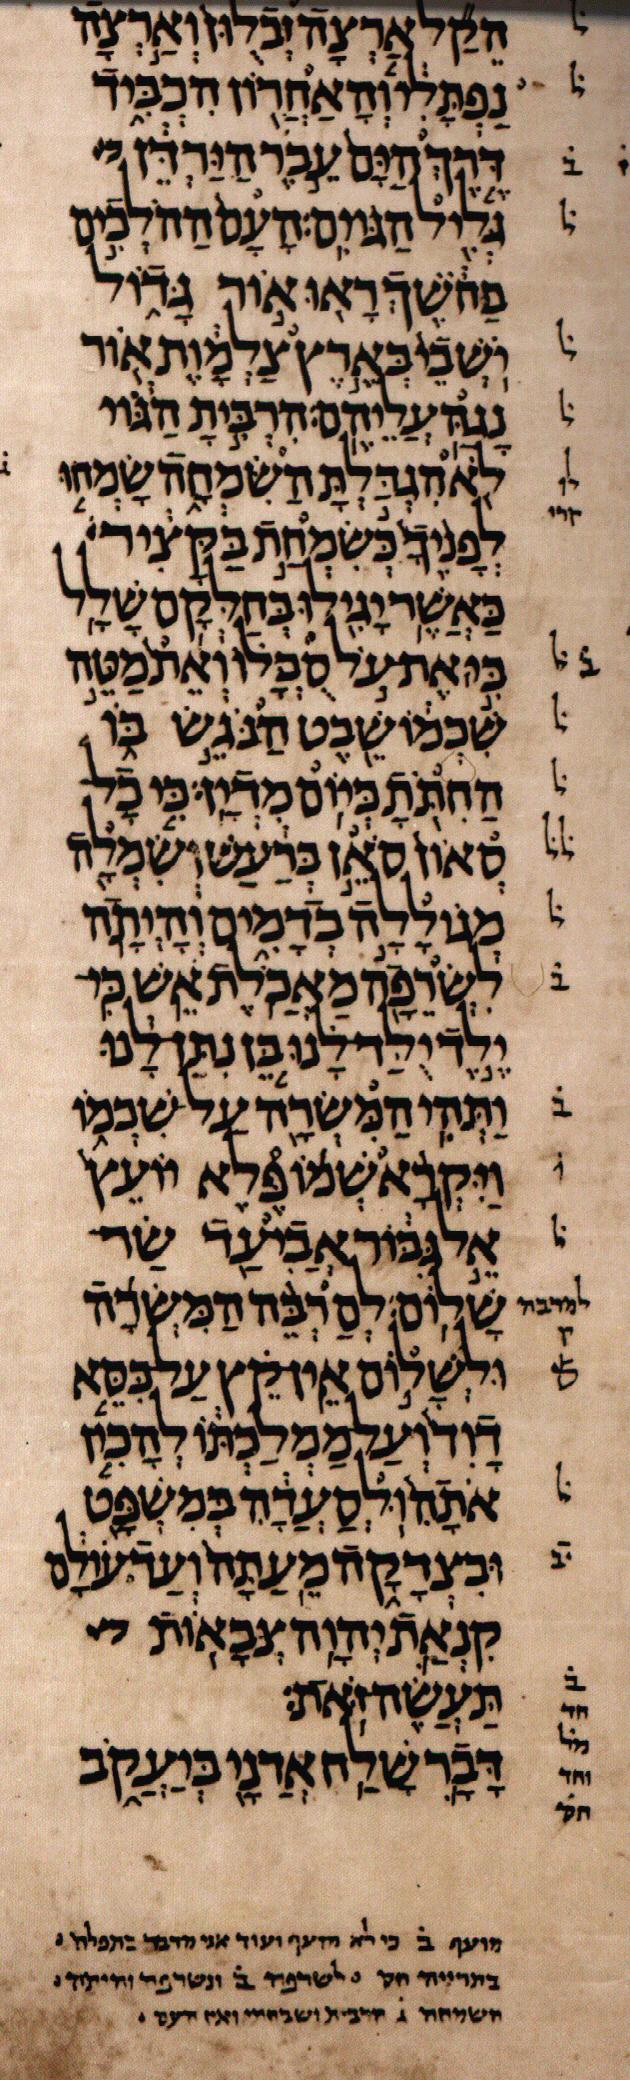 הֵקַל אַרְצָה זְבֻלוּן וְאַרְצָה
נַפְתָּלִי וְהָאַחֲרוֹן הִכְבִּיד
דֶּרֶךְ הַיָּם עֵבֶר הַיַּרְדֵּן
גְּלִיל הַגּוֹיִם׃ הָעָם הַהֹלְכִים
בַּחֹשֶׁךְ רָאוּ אוֹר גָּדוֹל
יֹשְׁבֵי בְּאֶרֶץ צַלְמָוֶת אוֹר
נָגַהּ עֲלֵיהֶם׃ הִרְבִּיתָ הַגּוֹי
לֹא הִגְדַּלְתָּ הַשִּׂמְחָה שָׂמְחוּ
לְפָנֶיךָ כְּשִׂמְחַת בַּקָּצִיר
כַּאֲשֶׁר יָגִילוּ בְּחַלְּקָם שָׁלָל׃
כִּי אֶת עֹל סֻבֳּלוֹ וְאֵת מַטֵּה
שִׁכְמוֹ שֵׁבֶט הַנֹּגֵשׂ בּוֹ
הַחִתֹּתָ כְּיוֹם מִדְיָן׃ כִּי כָל
סְאוֹן סֹאֵן בְּרַעַשׁ וְשִׂמְלָה
מְגוֹלָלָה בְדָמִים וְהָיְתָה
לִשְׂרֵפָה מַאֲכֹלֶת אֵשׁ׃ כִּי
יֶלֶד יֻלַּד לָנוּ בֵּן נִתַּן לָנוּ
וַתְּהִי הַמִּשְׂרָה עַל שִׁכְמוֹ
וַיִּקְרָא שְׁמוֹ פֶּלֶא יוֹעֵץ
אֵל גִּבּוֹר אֲבִי עַד שַׂר
שָׁלוֹם׃ לְםַרְבֵּה הַמִּשְׂרָה
וּלְשָׁלוֹם אֵין קֵץ עַל כִּסֵּא
דָוִד וְעַל מַמְלַכְתּוֹ לְהָכִין
אֹתָהּ וּלְסַעֲדָהּ בְּמִשְׁפָּט
וּבִצְדָקָה מֵעַתָּה וְעַד עוֹלָם
קִנְאַת יְהוָה צְבָאוֹת
תַּעֲשֶׂה זֹּאת׃
דָּבָר שָׁלַח אֲדֹנָי בְּיַעֲקֹב
מועף בׄ כי לא מועף ועוד אני מדבר בתפלה
לשרפה בׄ ונשרפה והיתה
השמחה גׄ הרבית ושבחתי